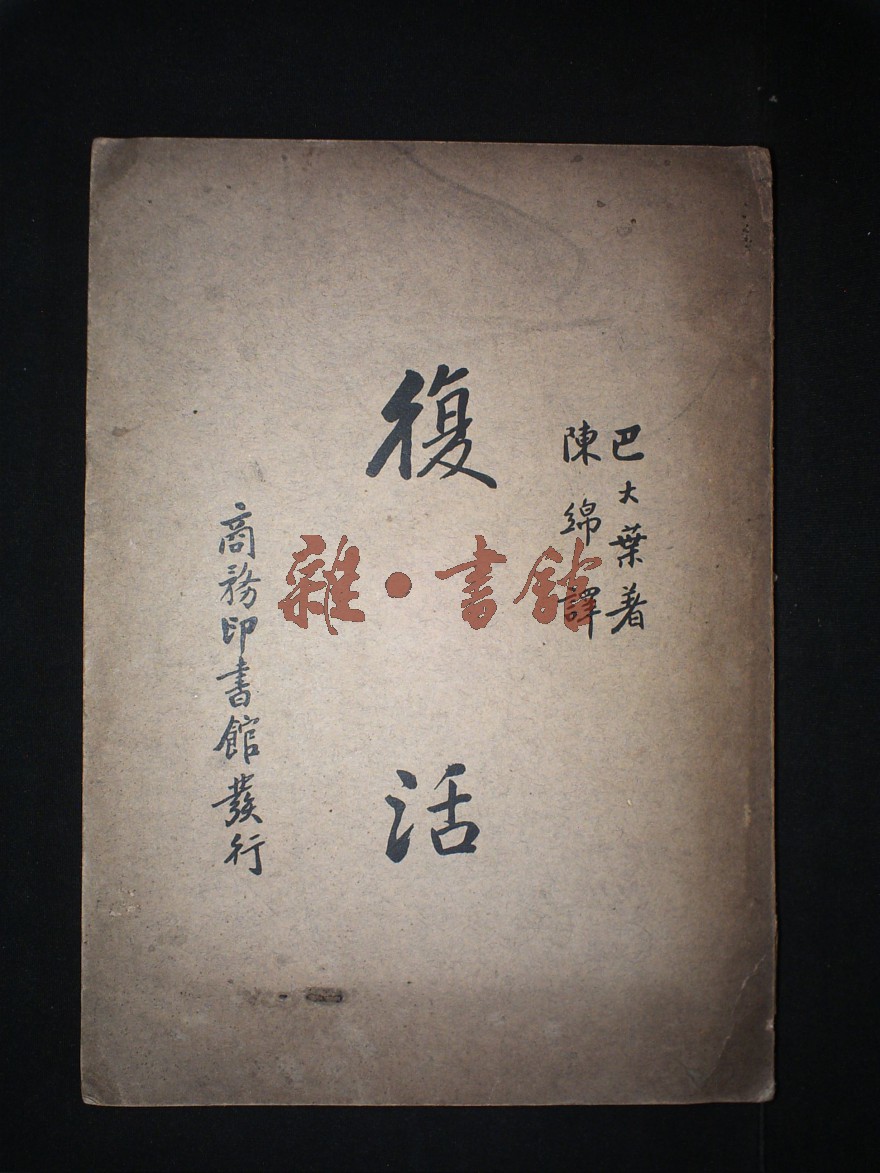 巴大葉著
陳綿譯
復活
商務印書館發行
雜·書館